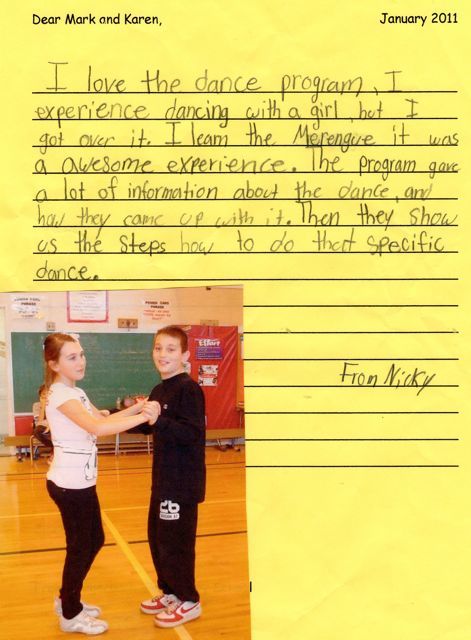 Dear Mark and Karen, January 2011
I love the dance program, I
experience dancing with a girl, but I
got over it. I learn the Merengue it was
a awesome experience. The program gave
a lot of information about the dance, and
how they came up with it. Then they show
us the steps how to do that specific
dance.
From Nicky